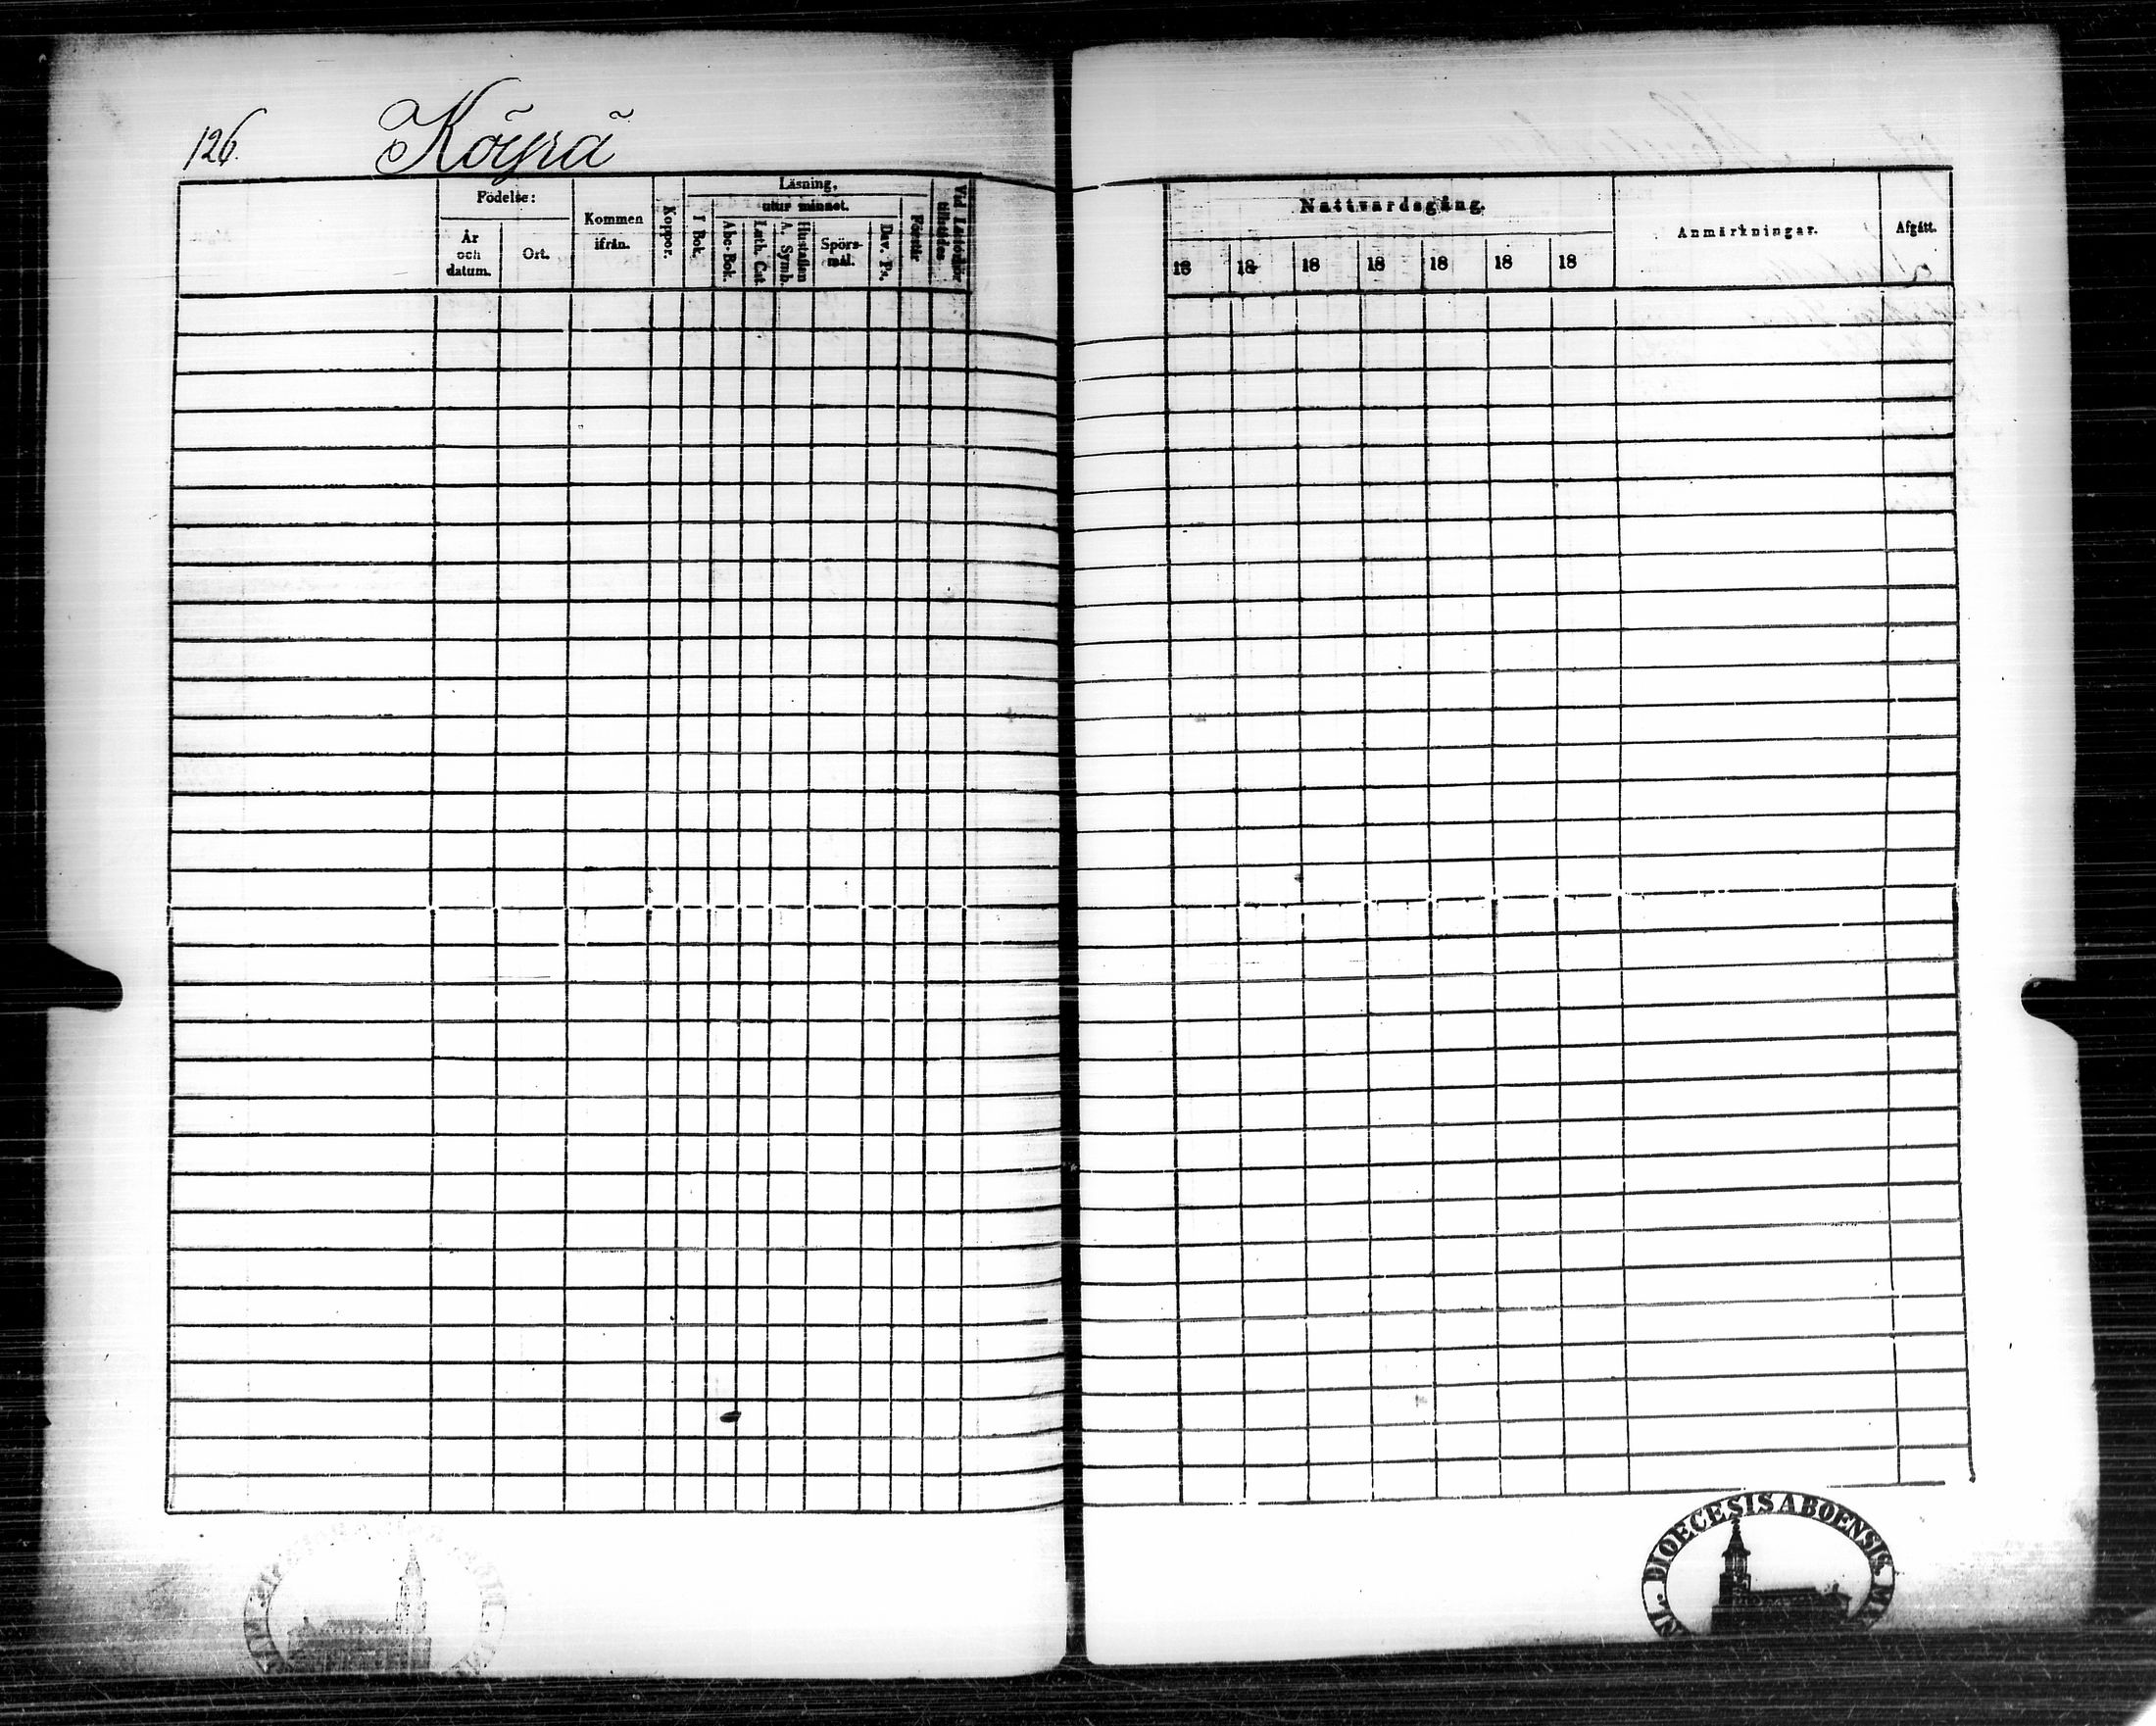 126. Köyrä
Födelse:
År
och
datum.
Ort.
Kommen
ifrån.
Koppor.
Läsning,
utur minnet.
I Bok.
Abc-Bok.
Luth. Cat.
A. Symb.
Hustaflan
Spörs-
mål.
Dav. Ps.
Förstår
Vid Läsförhör
tillstädes
Nattvardsgång.
18 18 18 18 18 18 18
Anmärkningar.
Afgått.
DIOECESIS ABOENSIS.